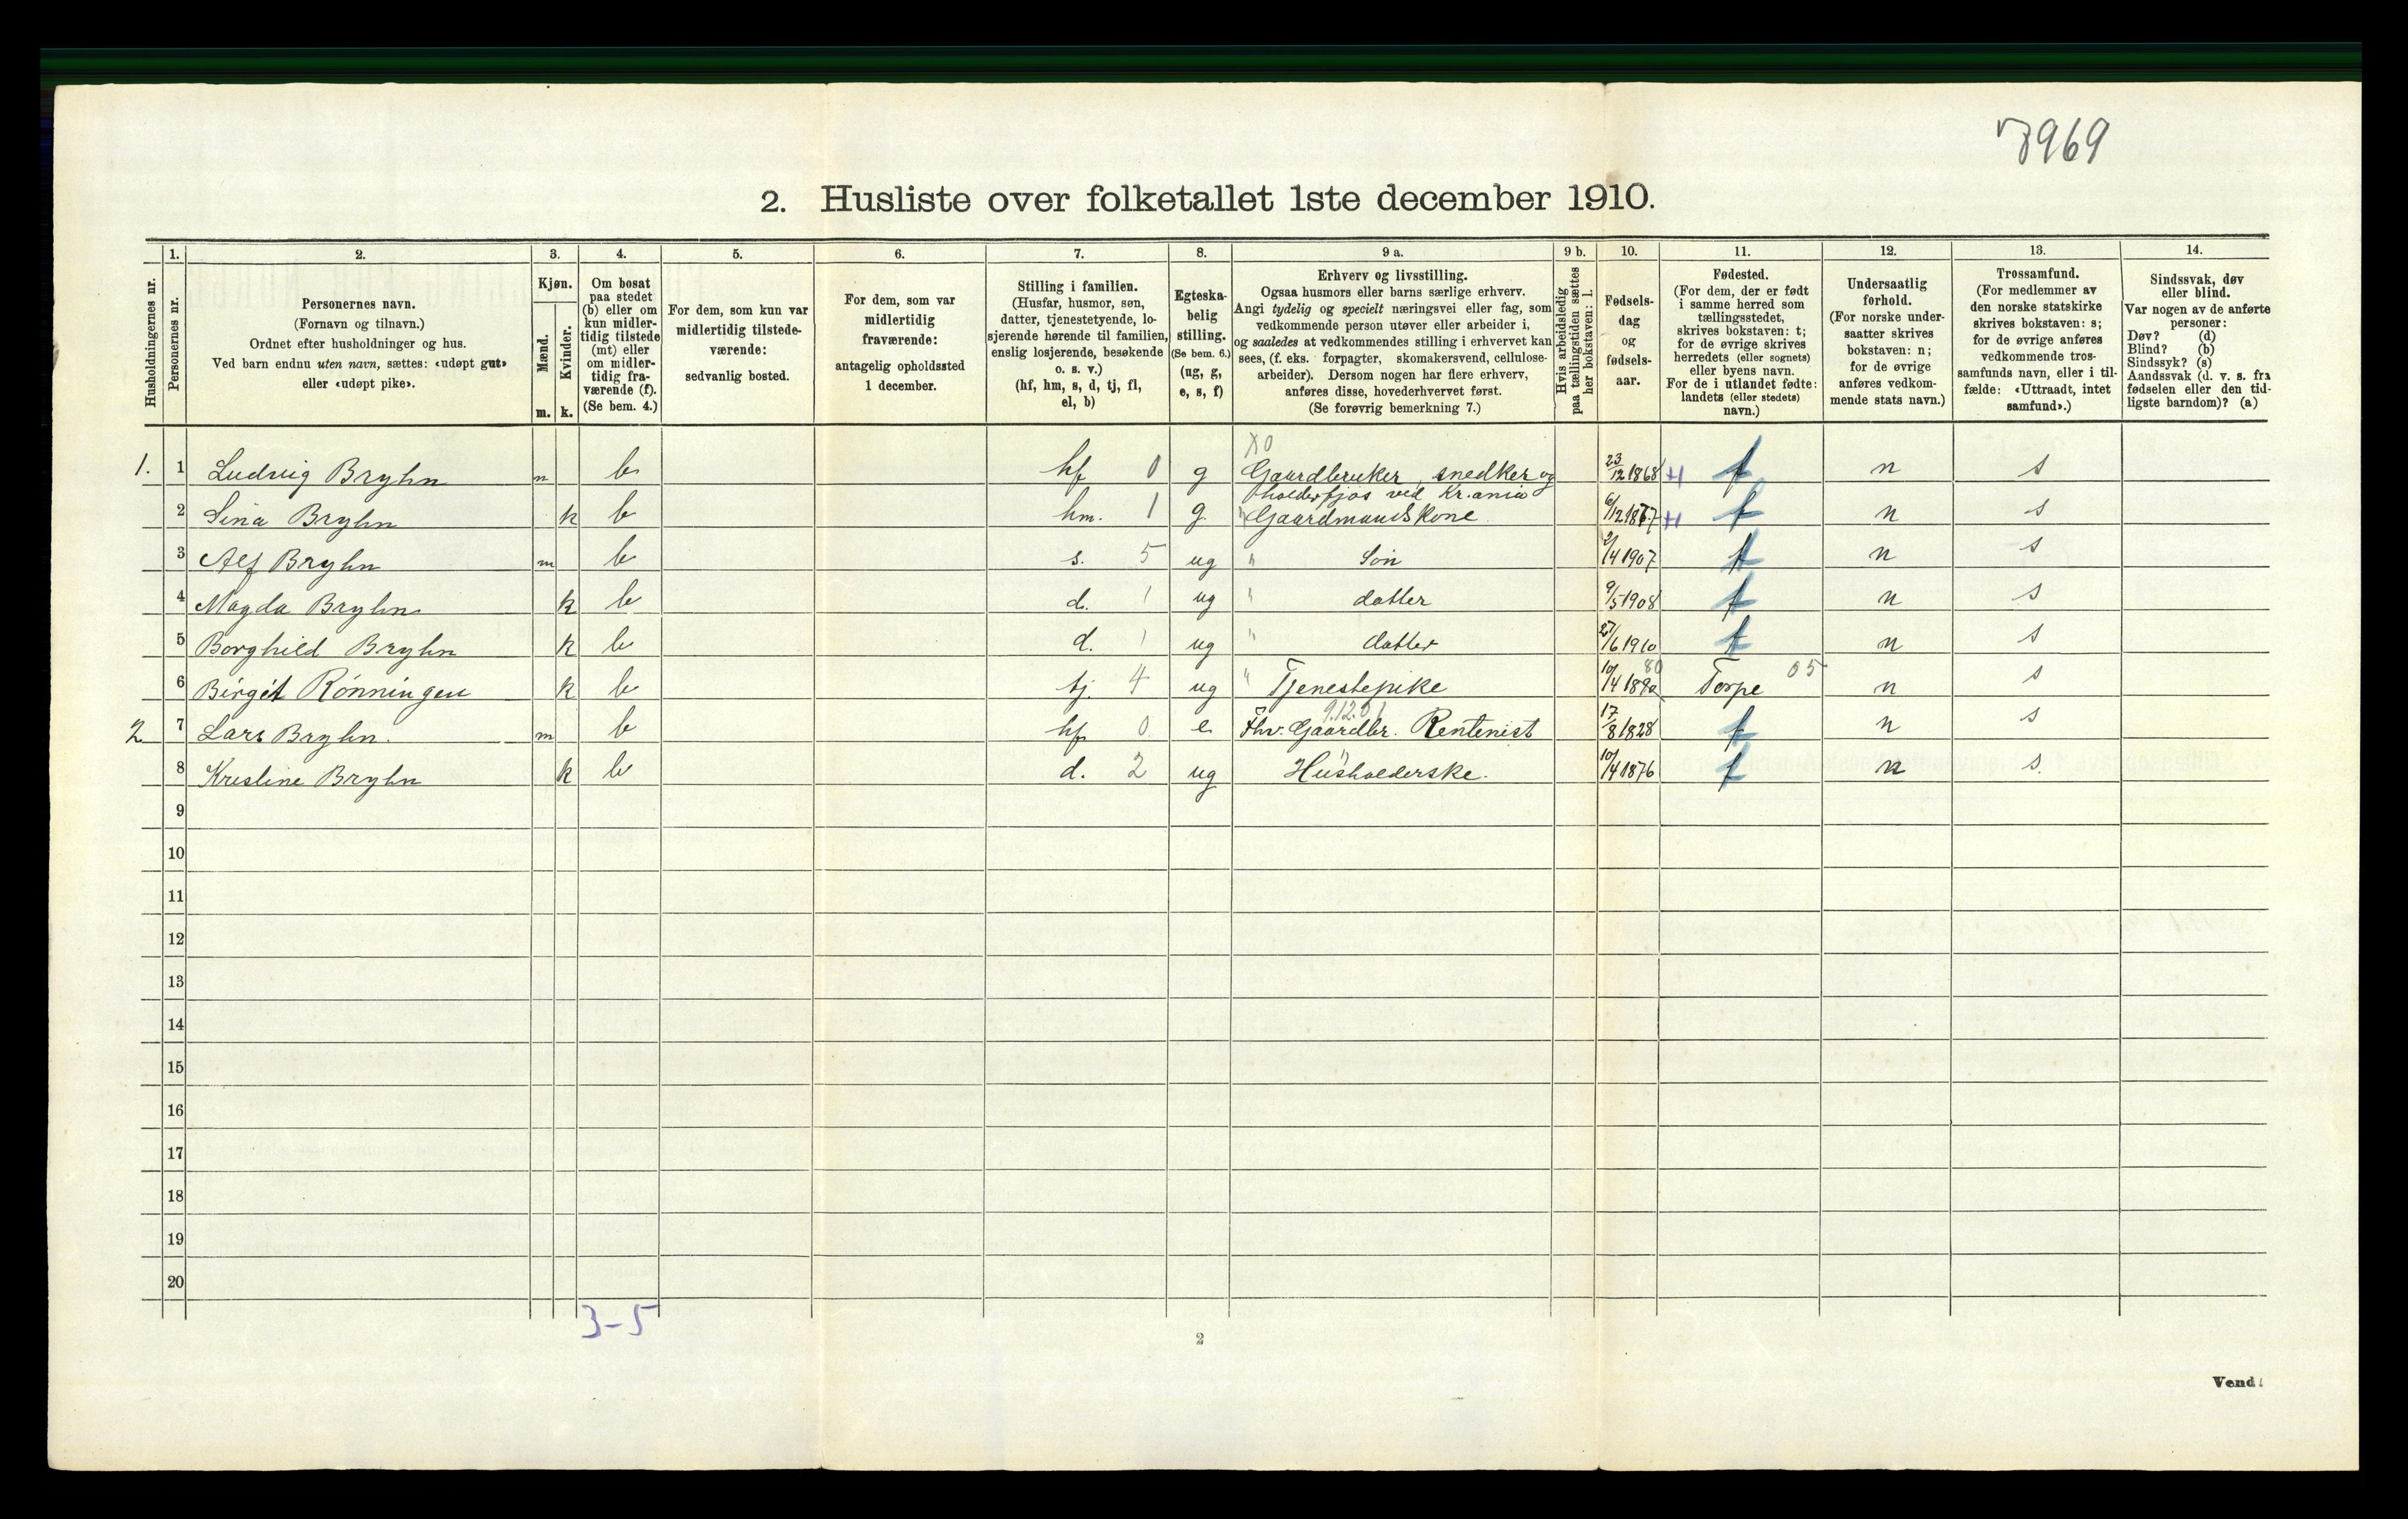 7969
2. Husliste over folketallet 1ste december 1910.
Husholdningernes nr.
1.
Personernes nr.
2.
Personernes navn.
(Fornavn og tilnavn.)
Ordnet efter husholdninger og hus.
Ved barn endnu uten navn, sættes: «udøpt gut»
eller «udøpt pike».
3.
Kjøn.
Mænd.
Kvinder.
m. k.
4.
Om bosat
paa stedet
(b) eller om
kun midler-
tidig tilstede
(mt) eller
om midler-
tidig fra-
værende (f).
(Se bem. 4.)
5.
For dem, som kun var
midlertidig tilstede-
værende:
sedvanlig bosted.
6.
For dem, som var
midlertidig
fraværende:
antagelig opholdssted
1 december.
7.
Stilling i familien.
(Husfar, husmor, søn,
datter, tjenestetyende, lo-
sjerende hørende til familien,
enslig losjerende, besøkende
o. s. v.)
(hf, hm, s, d, tj, fl,
el, b)
8.
Egteska-
belig
stilling.
(Se bem. 6.)
(ug, g,
e, s, f)
9 a.
Erhverv og livsstilling.
Ogsaa husmors eller barns særlige erhverv.
Angi tydelig og specielt næringsvei eller fag, som
vedkommende person utøver eller arbeider i,
og saaledes at vedkommendes stilling i erhvervet kan
sees, (f. eks. forpagter, skomakersvend, cellulose-
arbeider). Dersom nogen har flere erhverv,
anføres disse, hovederhvervet først.
(Se forøvrig bemerkning 7.)
9 b.
Hvis arbeidsledig
paa tællingstiden sættes
her bokstaven: l.
10.
Fødsels-
dag
og
fødsels-
aar.
11.
Fødested.
(For dem, der er født
i samme herred som
tællingsstedet,
skrives bokstaven: t;
for de øvrige skrives
herredets (eller sognets)
eller byens navn.
For de i utlandet fødte:
landets (eller stedets)
navn.)
12.
Undersaatlig
forhold.
(For norske under-
saatter skrives
bokstaven: n;
for de øvrige
anføres vedkom-
mende stats navn.)
13.
Trossamfund.
(For medlemmer av
den norske statskirke
skrives bokstaven: s;
for de øvrige anføres
vedkommende tros-
samfunds navn, eller i til-
fælde: «Uttraadt, intet
samfund».)
14.
Sindssvak, døv
eller blind.
Var nogen av de anførte
personer:
Døv? (d)
Blind? (b)
Sindssyk? (s)
Aandssvak (d. v. s. fra
fødselen eller den tid-
ligste barndom)? (a)
X0
1. 1 Ludvig Bryhn m b hf 0 g Gaardbruker, snedker og 23/12 1868 t n s
holder fjøs ved Kr.ania
2 Lina Bryhn k b hm. 1 g " Gaardmands Kone. 6/12 1877 t n s
3 Alf Bryhn m b s. 5 ug " Søn 2/4 1907 t n s
4 Magda Bryhn k b d. 1 ug " datter 9/5 1908 t n s
5 Borghild Bryhn k b d. 1 ug " datter 27/6 1910 t n s
6 Birgit Rønningen k b tj. 4 ug " Tjenestepike 10/4 1890 80 Torpe 05 n s
9.12.01
2 7 Lars Bryhn. m b hf 0 e Fhv. Gaardbr. Rentenist 17/8 1828 t n s
8 Kristine Bryhn k b d. 2 ug " Husholderske. 10/4 1876 t n s.
9
10
11
12
13
14
15
16
17
18
19
20
3-5
2
Vend!